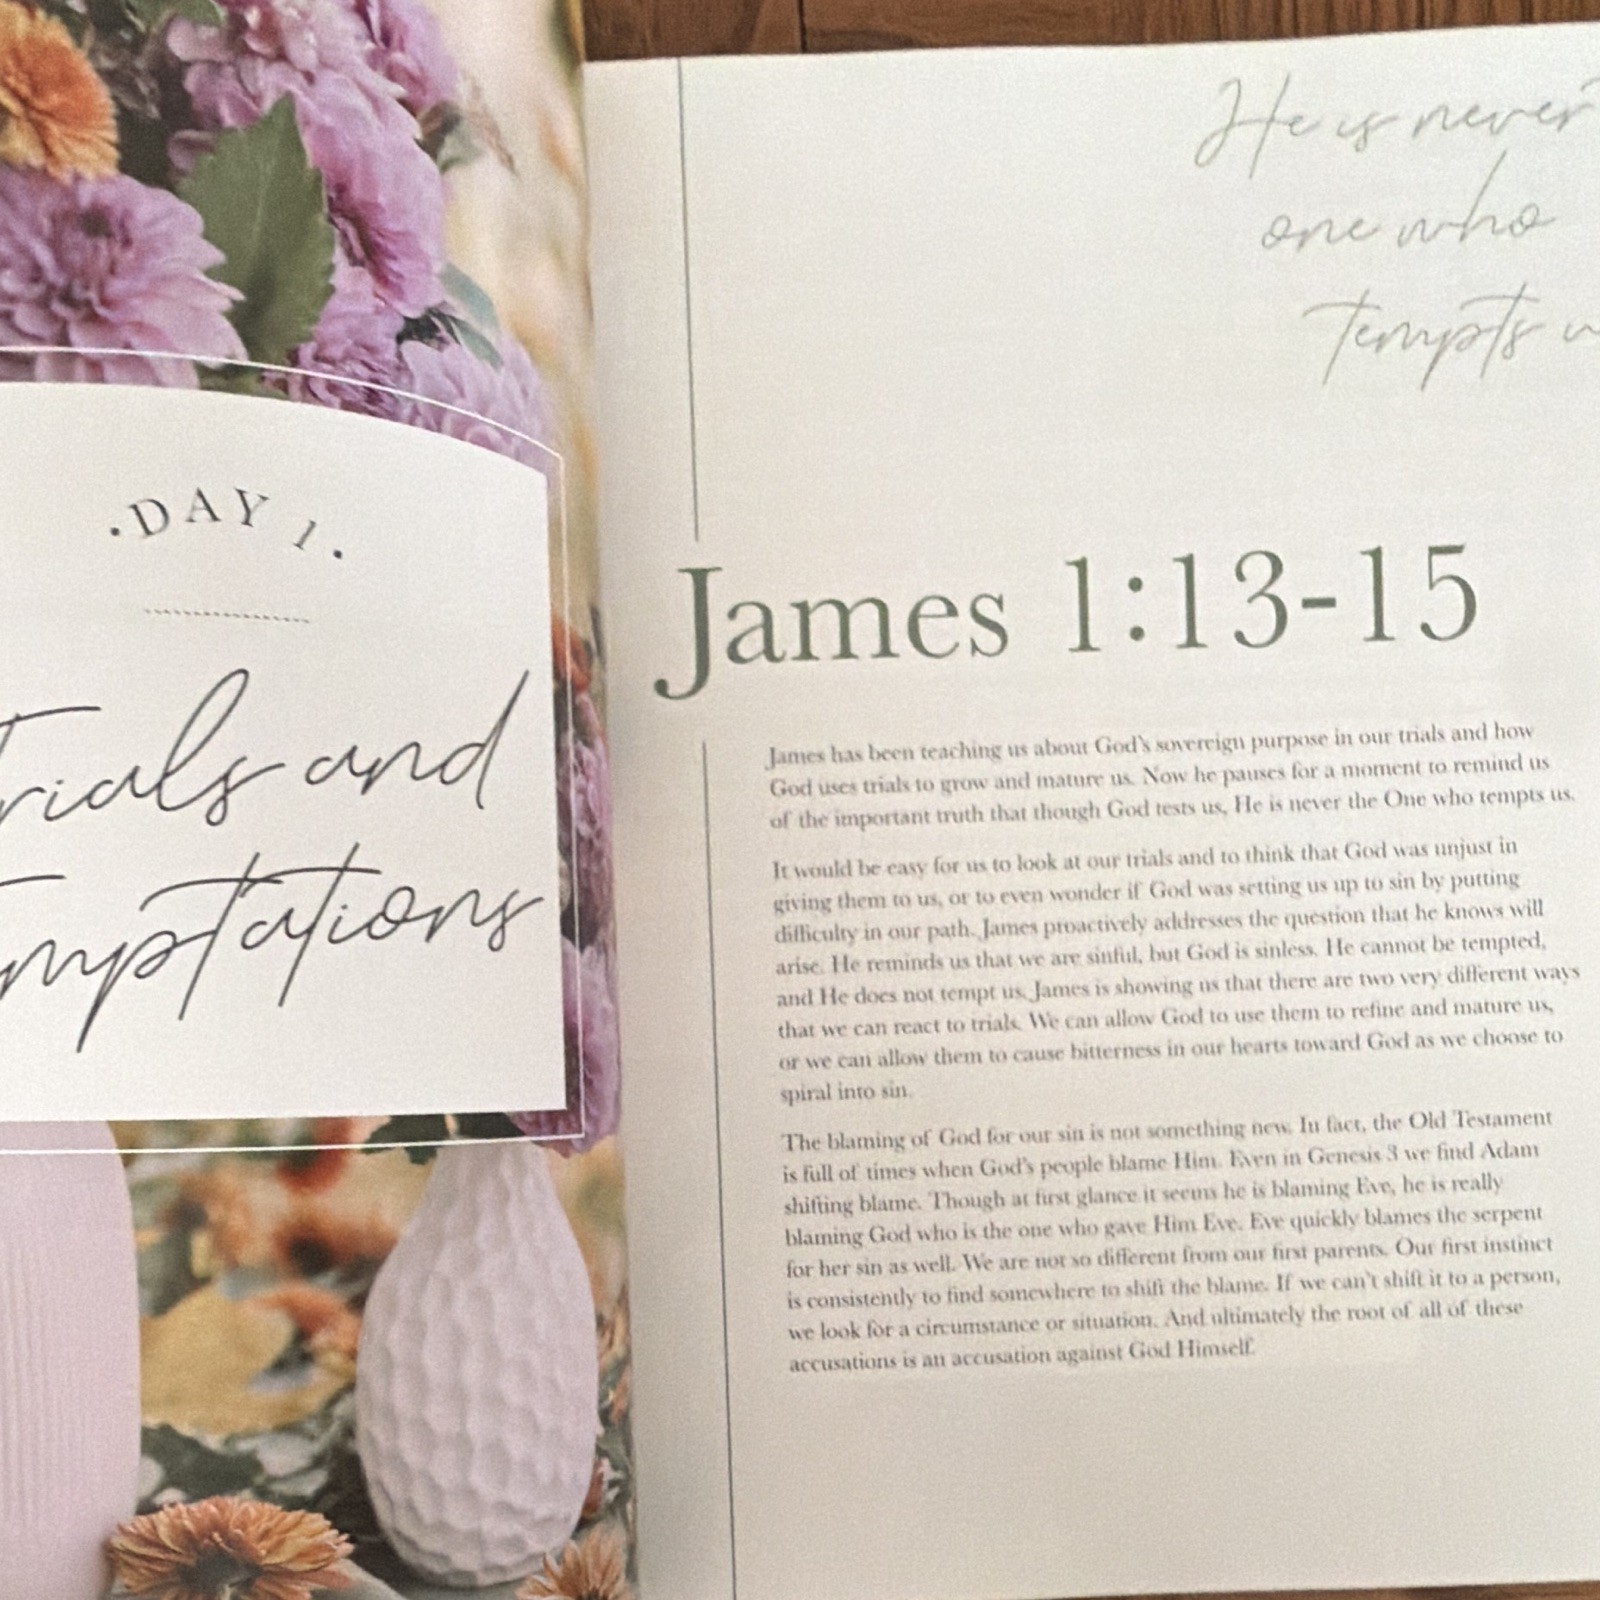 ·DAY 1.
Trials and
Temptations
He is never
one who
tempts
James 1:13-15
James has been teaching us about God's sovereign purpose in our trials and how
God uses trials to grow and mature us. Now he pauses for a moment to remind us
of the important truth that though God tests us, He is never the One who tempts us.
It would be easy for us to look at our trials and to think that God was unjust in
giving them to us, or to even wonder if God was setting us up to sin by putting
difficulty in our path. James proactively addresses the question that he knows will
arise. He reminds us that we are sinful, but God is sinless. He cannot be tempted,
and He does not tempt us. James is showing us that there are two very different ways
that we can react to trials. We can allow God to use them to refine and mature us,
or we can allow them to cause bitterness in our hearts toward God as we choose to
spiral into sin.
The blaming of God for our sin is not something new. In fact, the Old Testament
is full of times when God's people blame Him. Even in Genesis 3 we find Adam
shifting blame. Though at first glance it seems he is blaming Eve, he is really
blaming God who is the one who gave Him Eve. Eve quickly blames the serpent
for her sin as well. We are not so different from our first parents. Our first instinct
is consistently to find somewhere to shift the blame. If we can't shift it to a person,
we look for a circumstance or situation. And ultimately the root of all of these
accusations is an accusation against God Himself.